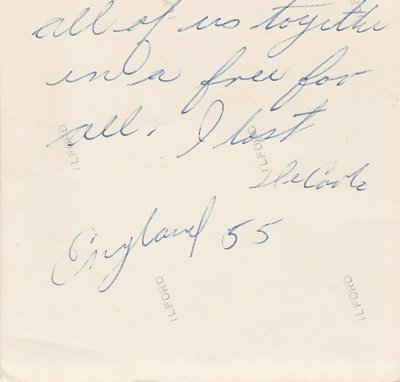 all of us together
in a free for
all. I lost
DeCarlo
England 55
ILFORD
ILFORD
ILFORD
ILFORD